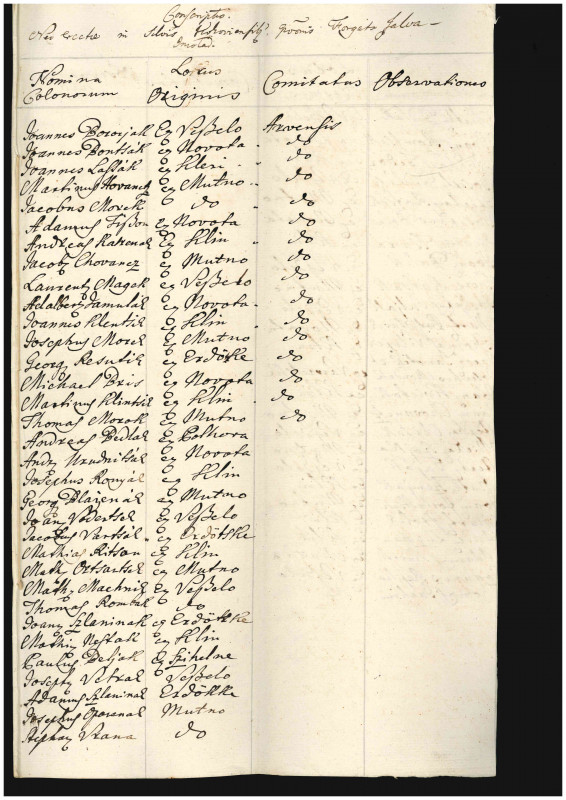 Conscriptio.
Neo erectae in Silvis
Nomina Colonorum Locus Originis Comitatus Observationes
Joannes Bozorjak Ex Veßelo Arvensis
Joannes Bontsik ex Novota do
Joannes Laßák ex Klin do
Martinus Hovanetz ex Mutno do
Jacobus Morek do do
Adamus Fißon Ex Novota do
Andreas Ex Klin do
Jacob Chovanez ex Mutno do
Laurent Magek ex Veßelo do
Adalbert Jamulak ex Novota do
Joannes Klentsik ex Klin do
Josephus Morek Ex Mutno do
Georg Resutik ex Erdötke do
Michael Bris ex Novota do
Martinus Klintsik ex Klin do
Thomas Morak Ex Mutno do
Andreas Bedlak Ex Polhora
Andr Hrudnitsák ex Novota
Josephus Ronyak ex Klin
Georg Blaženak ex Mutno
Joan Vodertsek Ex Veßelo
Jacobus Vartsik ex Erdötske
Mathias Kitson ex Klin
Math Oztsartsek ex Mutno
Math Machnik Ex Veßelo
Thomas Rombak do
Joan Szlaninak ex Erdötske
Mathi Neßtak ex Klin
Paulus Beljak Ex Szihelne
Joseph Vetrak Veßelo
Adamus Szlaninak Erdökke
Josephus Oporanak Mutno
Stephan Vrana do